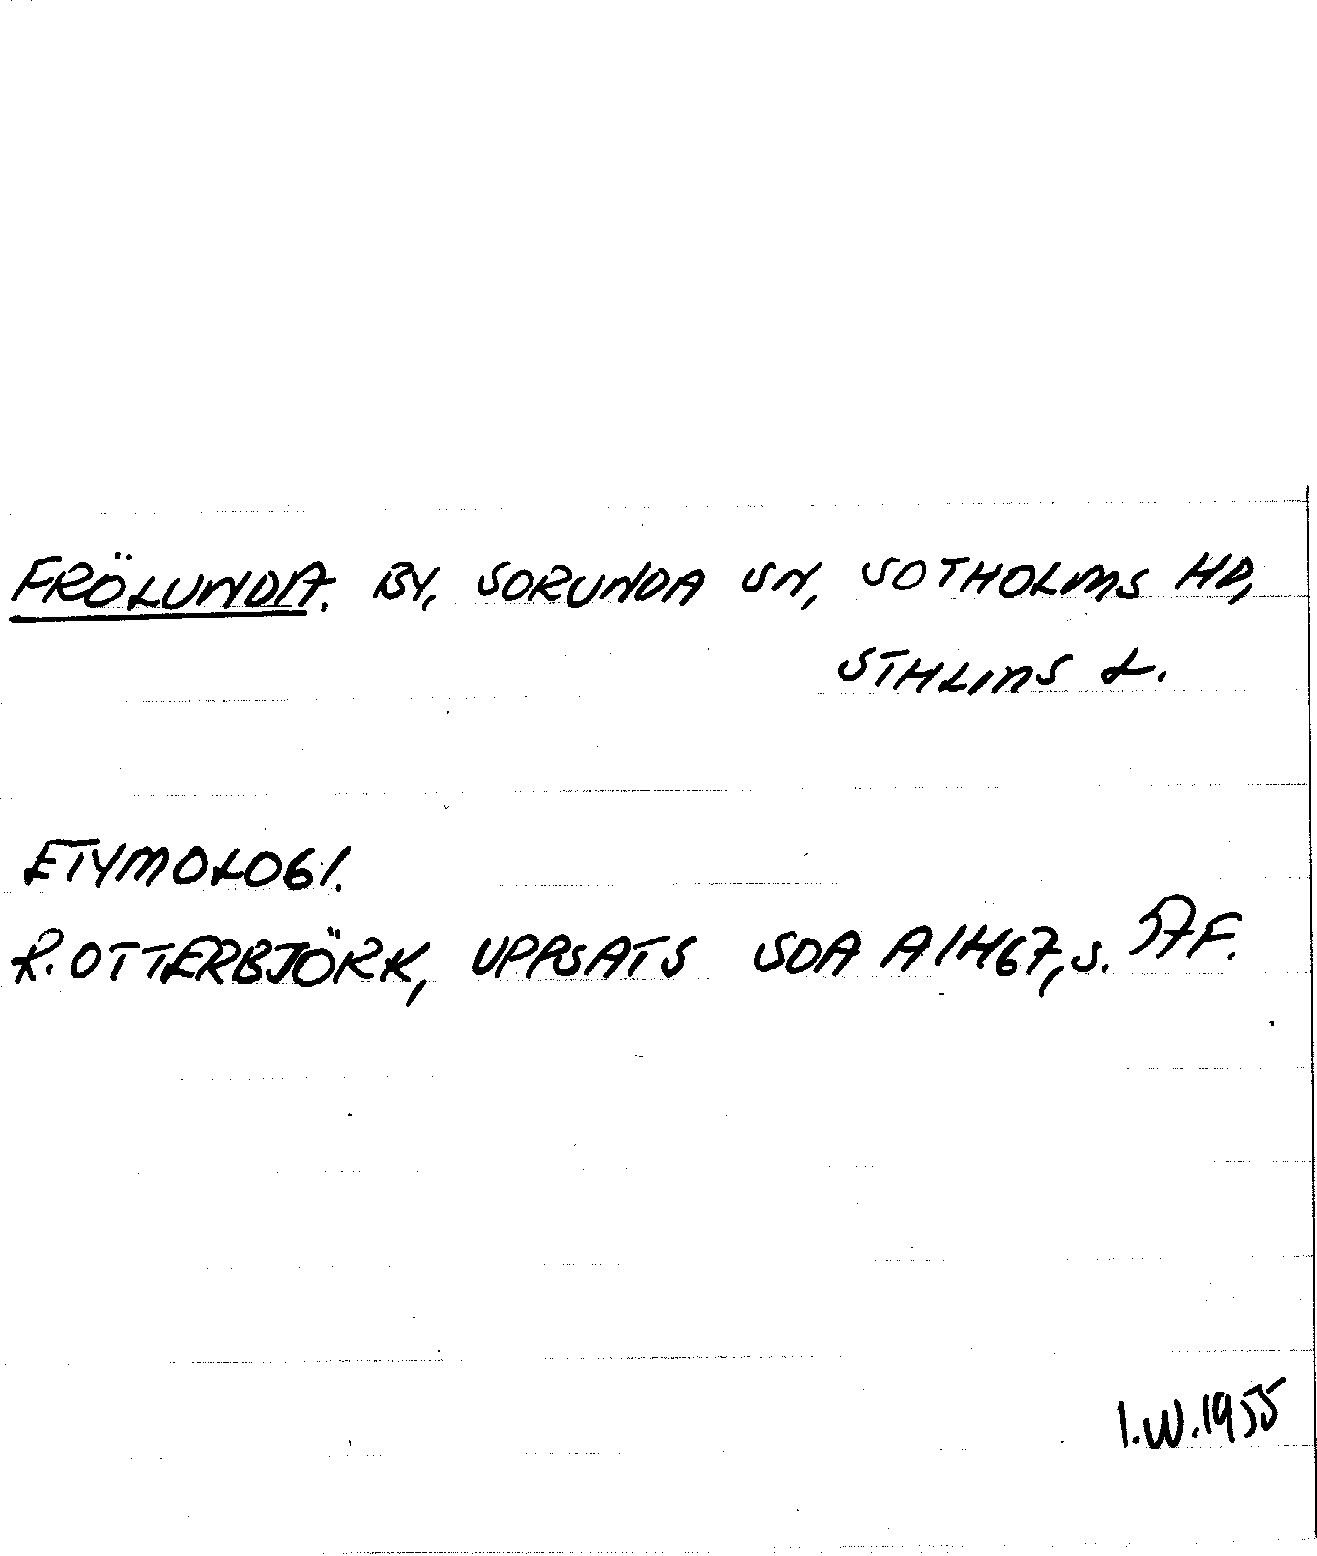 FRÖLUNDA. BY, SORUNDA SN, SOTHOLMS HD,
STHLMS L.
ETYMOLOGI.
R. OTTERBJÖRK, UPPSATS SOA A1467, S. 57F.
I.W. 1955